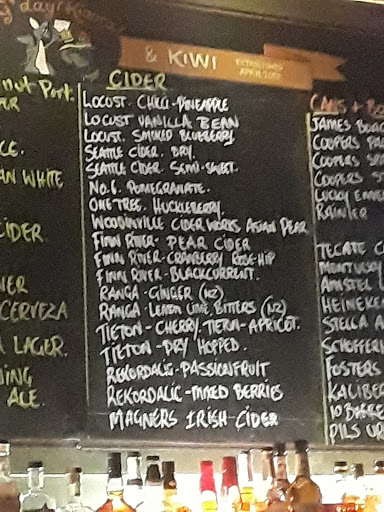 G'day! Kiaora
& KIWI
ESTABLISHED
nut Port.
TER
CE.
AN WHITE
CIDER.
NER
CERVEZA
LAGER.
ING
ALE.
CIDER
LOCUST. CHILLI-PINEAPPLE
LOCUST VANILLA BEAN
LOCUST. SMOKED BLUEBERRY.
SEATTLE CIDER. DRY.
SEATTLE CIDER. SEMI-SWEET.
No.6. POMEGRANATE.
ONE TREE. HUCKLEBERRY.
WOODINVILLE CIDER WORKS ASIAN PEAR
FINN RIVER- PEAR CIDER
FINN RIVER-CRANBERRY ROSE-HIP
FINN RIVER-BLACKCURRENT.
RANGA-GINGER (NZ)
RANGA-LEMON LIME BITTERS (NZ)
TIETON-CHERRY. TIETON-APRICOT.
TIETON-DRY HOPPED.
REKORDALIC-PASSIONFRUIT
REKORDALIC-MIXED BERRIES
MAGNERS IRISH-CIDER
CANS + B
JAMES BOAG
COOPERS PA
COOPERS SP
COOPERS S
LUCKY
RAINIER
TECATE C
MONTUCKY
AMSTEL L
HEINEKE
STELLA A
SCHOFFERH
FOSTERS
KALIBER
10 BARRE
PILS UR